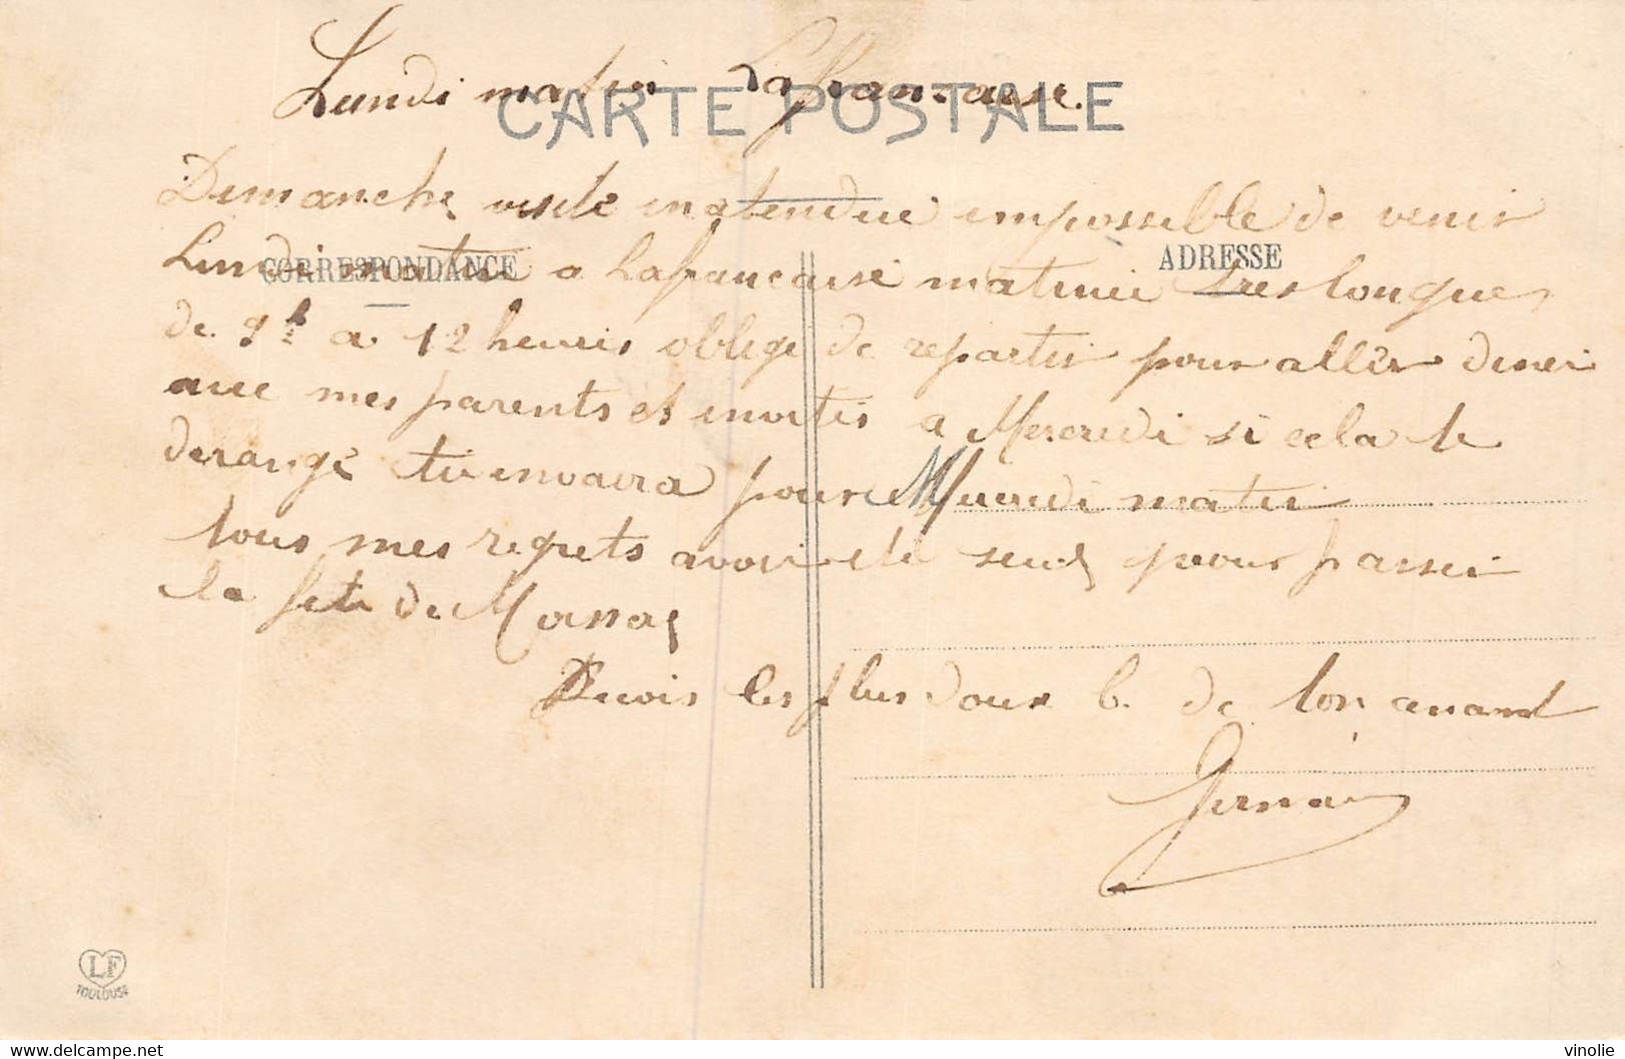 Lundi matin Lafrancaise.
CARTE POSTALE
Dimanche visite inatendue impossible de venir
CORRESPONDANCE
ADRESSE
Lundi matin a Lafrancaise matinee tres longue
de 9h à 12 heures oblige de repartir pour aller diner
avec mes parents et invites a Mercredi si cela te
derange tu envaira pour Mercredi matin
tous mes regrets avoir ete seul pour passer
la fete de
Recois les plus doux b. de ton amant
Germain
LF
TOULOUSE
vinolie
www.delcampe.net